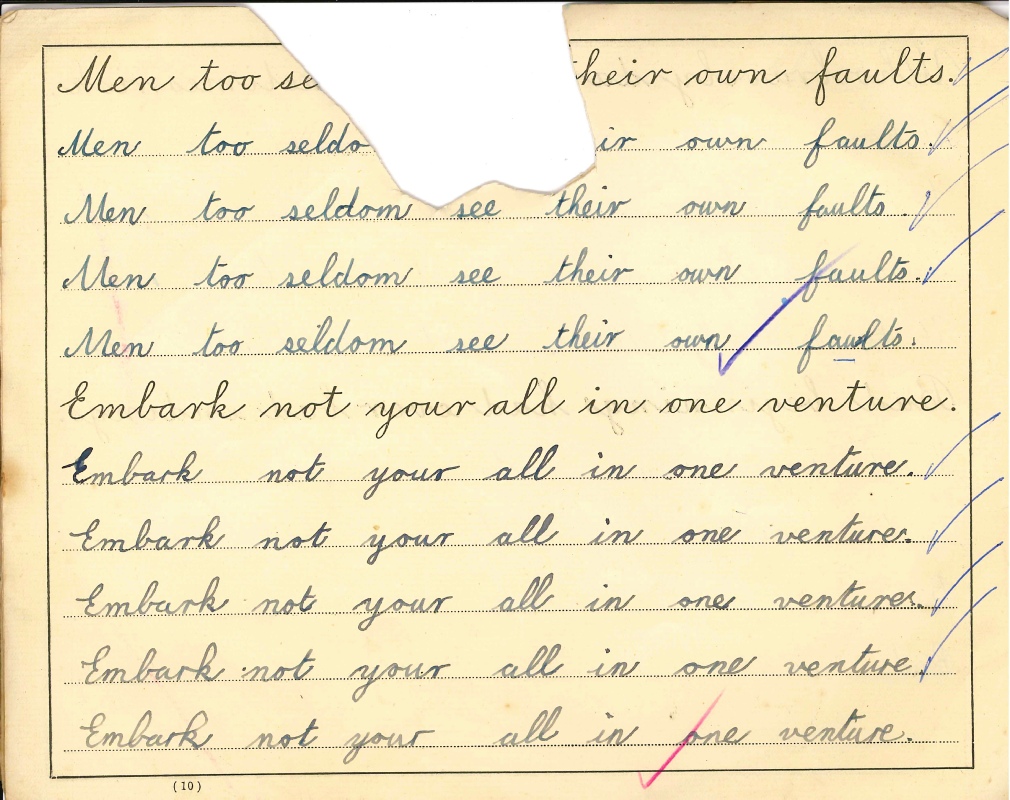 Men too se their own faults.
Men too seldo ir own faults.
Men too seldom see their own faults.
Men too seldom see their own faults.
Men too seldom see their own faults.
Embark not your all in one venture.
Embark not your all in one venture.
Embark not your all in one venture.
Embark not your all in one venture.
Embark not your all in one venture.
Embark not your all in one venture.
(10)